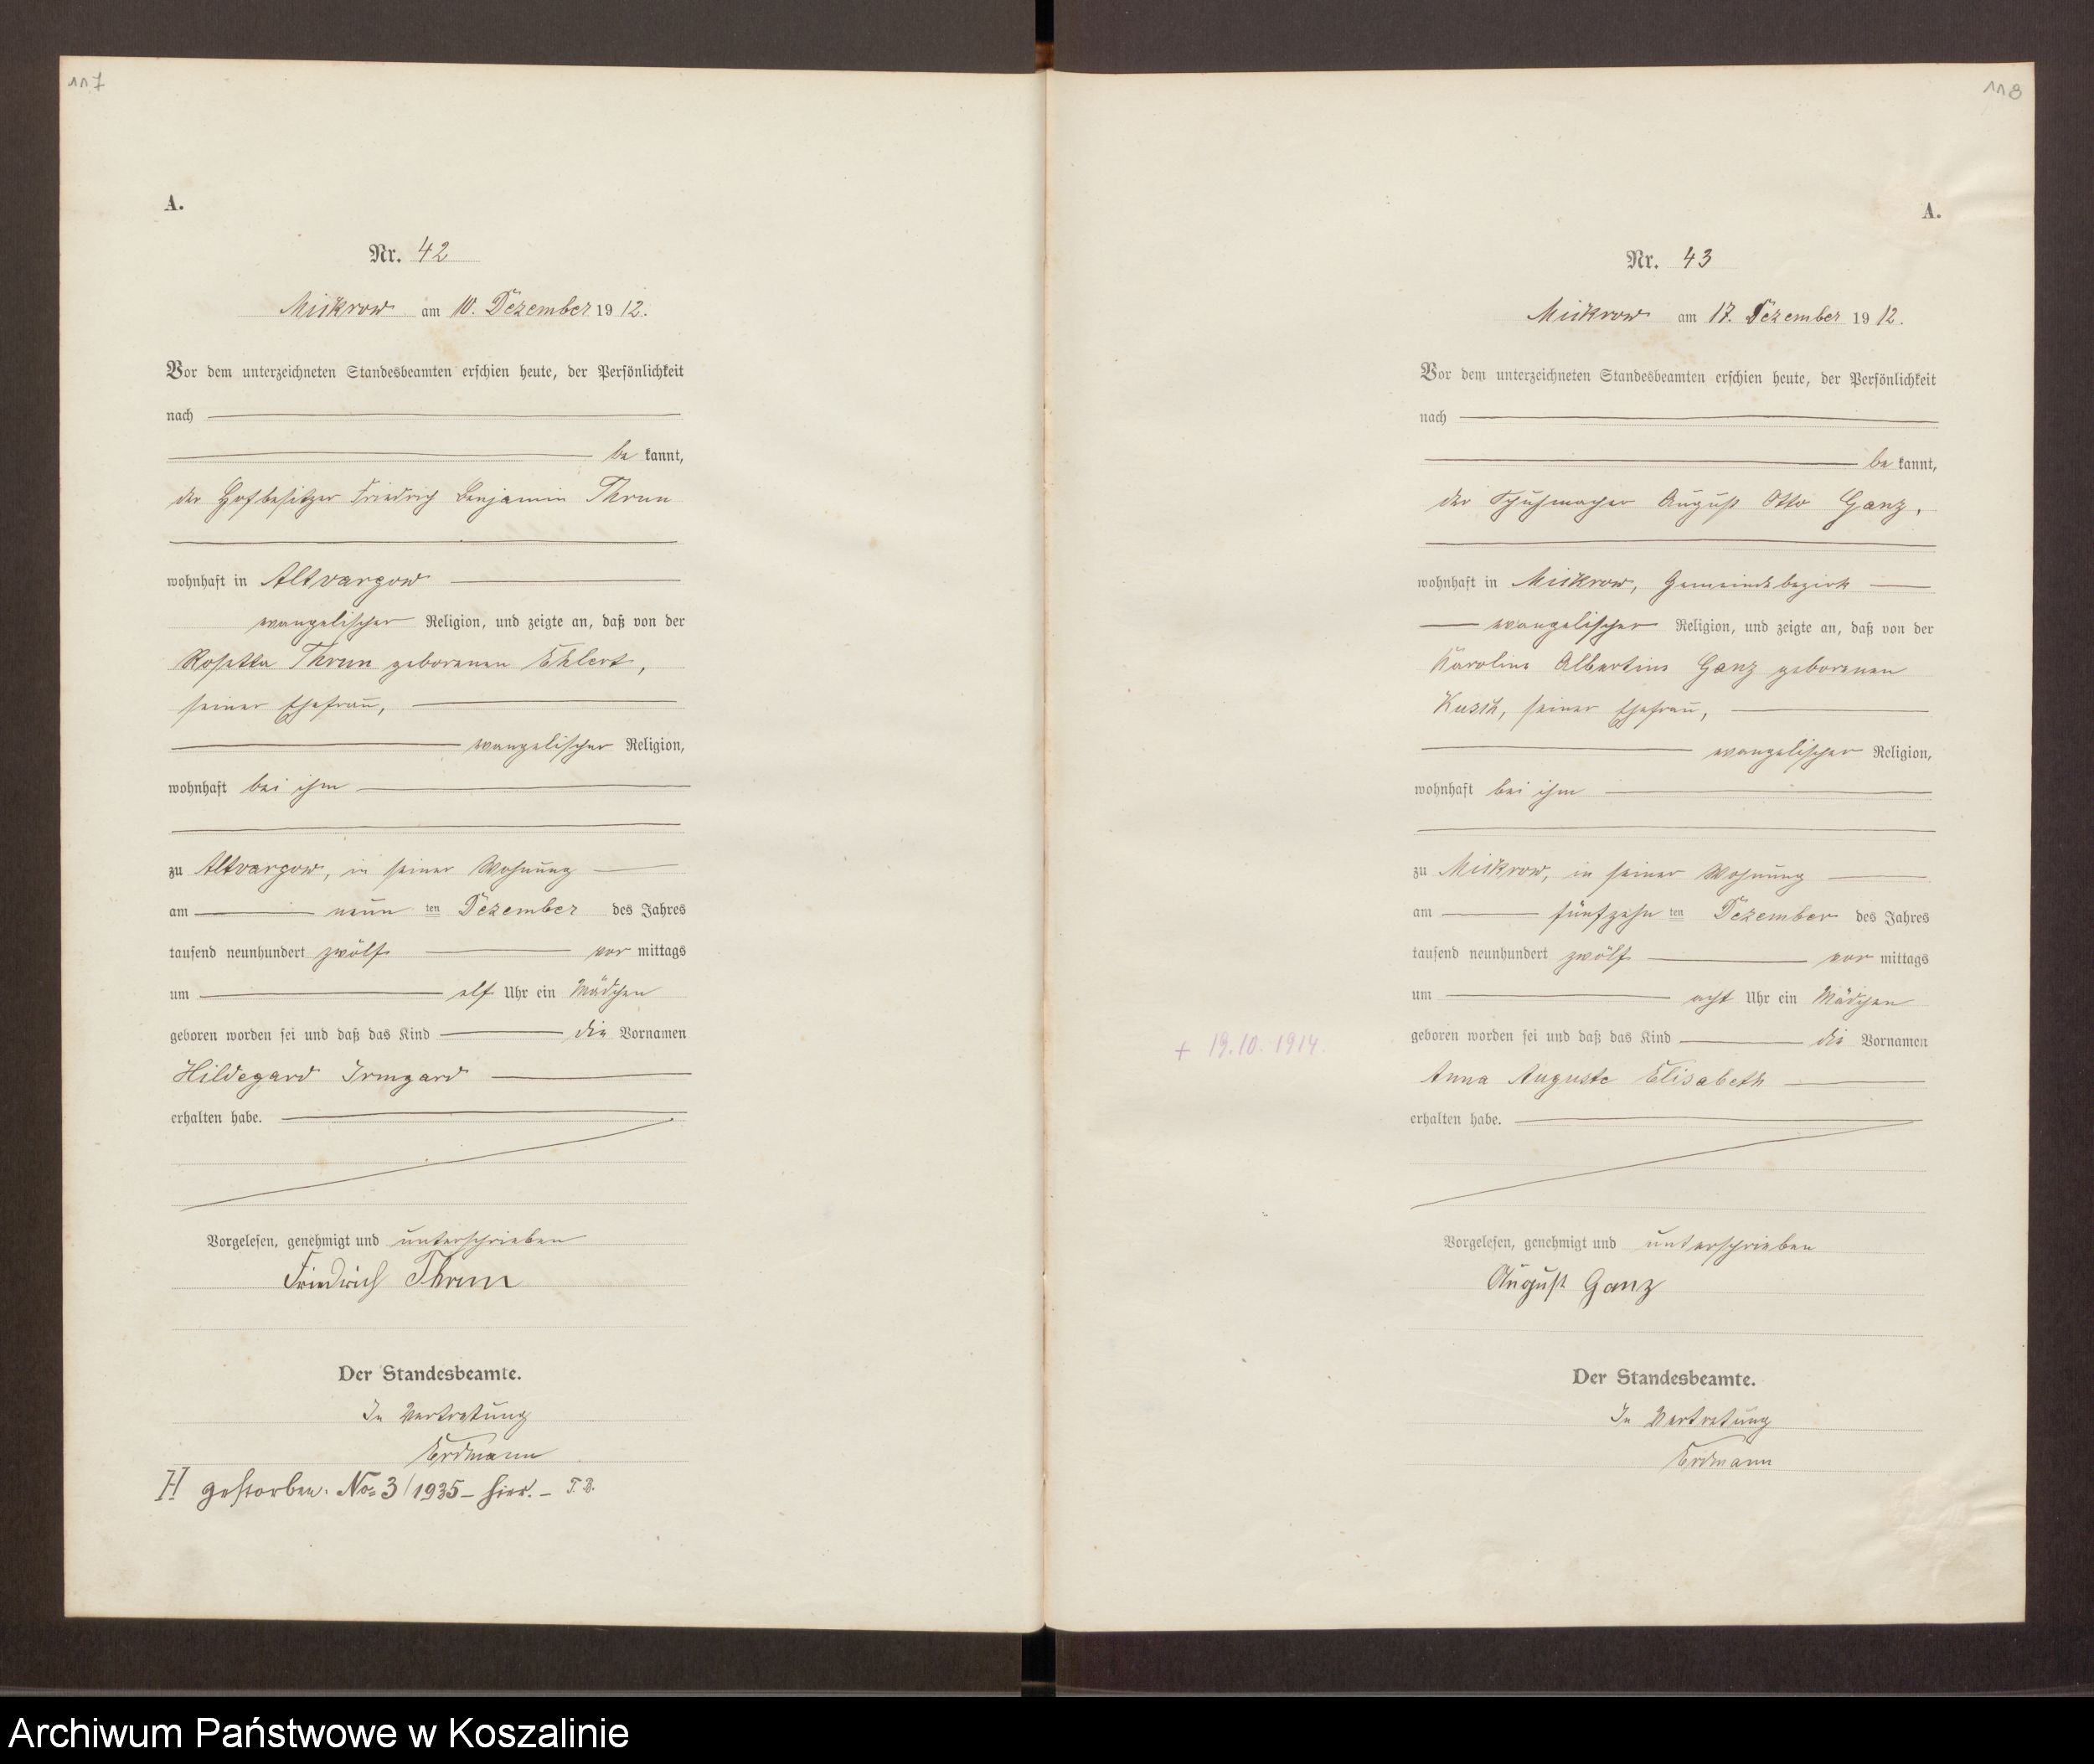 117
A.
Nr. 42
Mickrow am 10. Dezember 1912.
Vor dem unterzeichneten Standesbeamten erschien heute, der Persönlichkeit
nach
be kannt,
der Hofbesitzer Friedrich Benjamin Thrun
wohnhaft in Altvargow
evangelischer Religion, und zeigte an, daß von der
Rosetta Thrun geborenen Ehlert,
seiner Ehefrau,
evangelischer Religion,
wohnhaft bei ihm
zu Altvargow, in seiner Wohnung
am neun ten Dezember des Jahres
tausend neunhundert zwölf vor mittags
um elf Uhr ein Mädchen
geboren worden sei und daß das Kind die Vornamen
Hildegard Irmgard
erhalten habe.
Vorgelesen, genehmigt und unterschrieben
Friedrich Thrun
Der Standesbeamte.
In Vertretung
Erdmann
H gestorben. No 3/1935 – hier. –
118
A.
Nr. 43
Mickrow am 17. Dezember 1912.
Vor dem unterzeichneten Standesbeamten erschien heute, der Persönlichkeit
nach
be kannt,
der Schuhmacher August Otto Ganz,
wohnhaft in Mickrow, Gemeindebezirk
evangelischer Religion, und zeigte an, daß von der
Karoline Albertine Ganz geborenen
Kusch, seiner Ehefrau,
evangelischer Religion,
wohnhaft bei ihm
zu Mickrow, in seiner Wohnung
am fünfzehn ten Dezember des Jahres
tausend neunhundert zwölf vor mittags
um acht Uhr ein Mädchen
geboren worden sei und daß das Kind die Vornamen
+ 19.10.1914.
Anna Auguste Elisabeth
erhalten habe.
Vorgelesen, genehmigt und unterschrieben
August Ganz
Der Standesbeamte.
In Vertretung
Erdmann
Archiwum Państwowe w Koszalinie